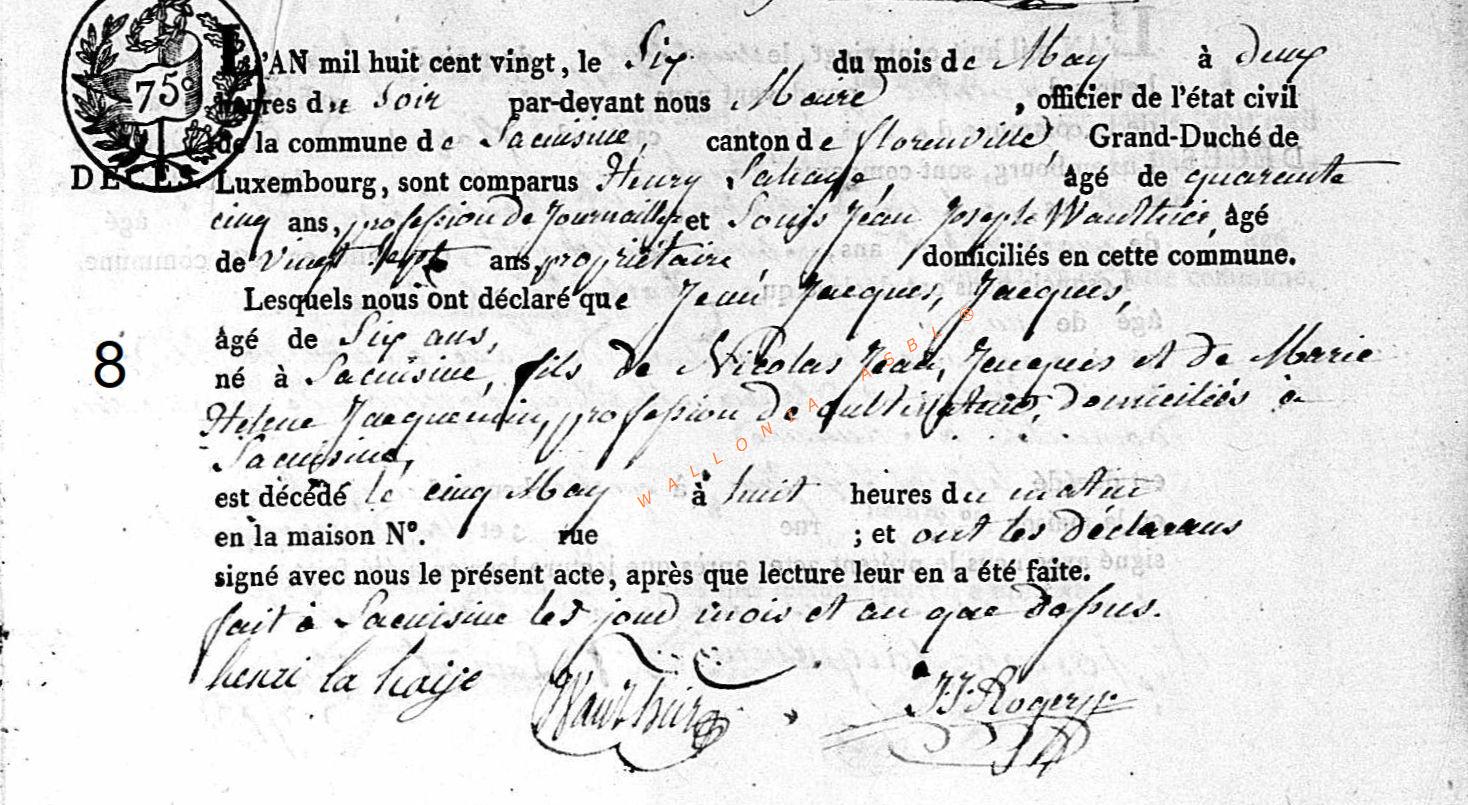 75c
L'AN mil huit cent vingt, le Six du mois de May à deux
heures du Soir par-devant nous Maire, officier de l'état civil
de la commune de Lacuisine, canton de florenville, Grand-Duché de
DÉCÈS. Luxembourg, sont comparus Henry Lahaye, âgé de quarante
cinq ans, profession de Journallier et Louis Jean Joseph Wauthier, âgé
de vingt Sept ans, propriétaire domiciliés en cette commune.
Lesquels nous ont déclaré que Jean Jacques, Jacques,
âgé de Six ans,
8
né à Lacuisine, fils de Nicolas Jean, Jacques et de Marie
Helene Jacquemin, profession de cultivateurs, domiciliés à
Lacuisine,
est décédé le cinq May à huit heures du matin
en la maison N°. rue ; et ont les déclarans
signé avec nous le présent acte, après que lecture leur en a été faite.
fait à Lacuisine les jour mois et an que dessus.
henri la haije Wauthier JJ Rogery
WALLONIA ASBL ®